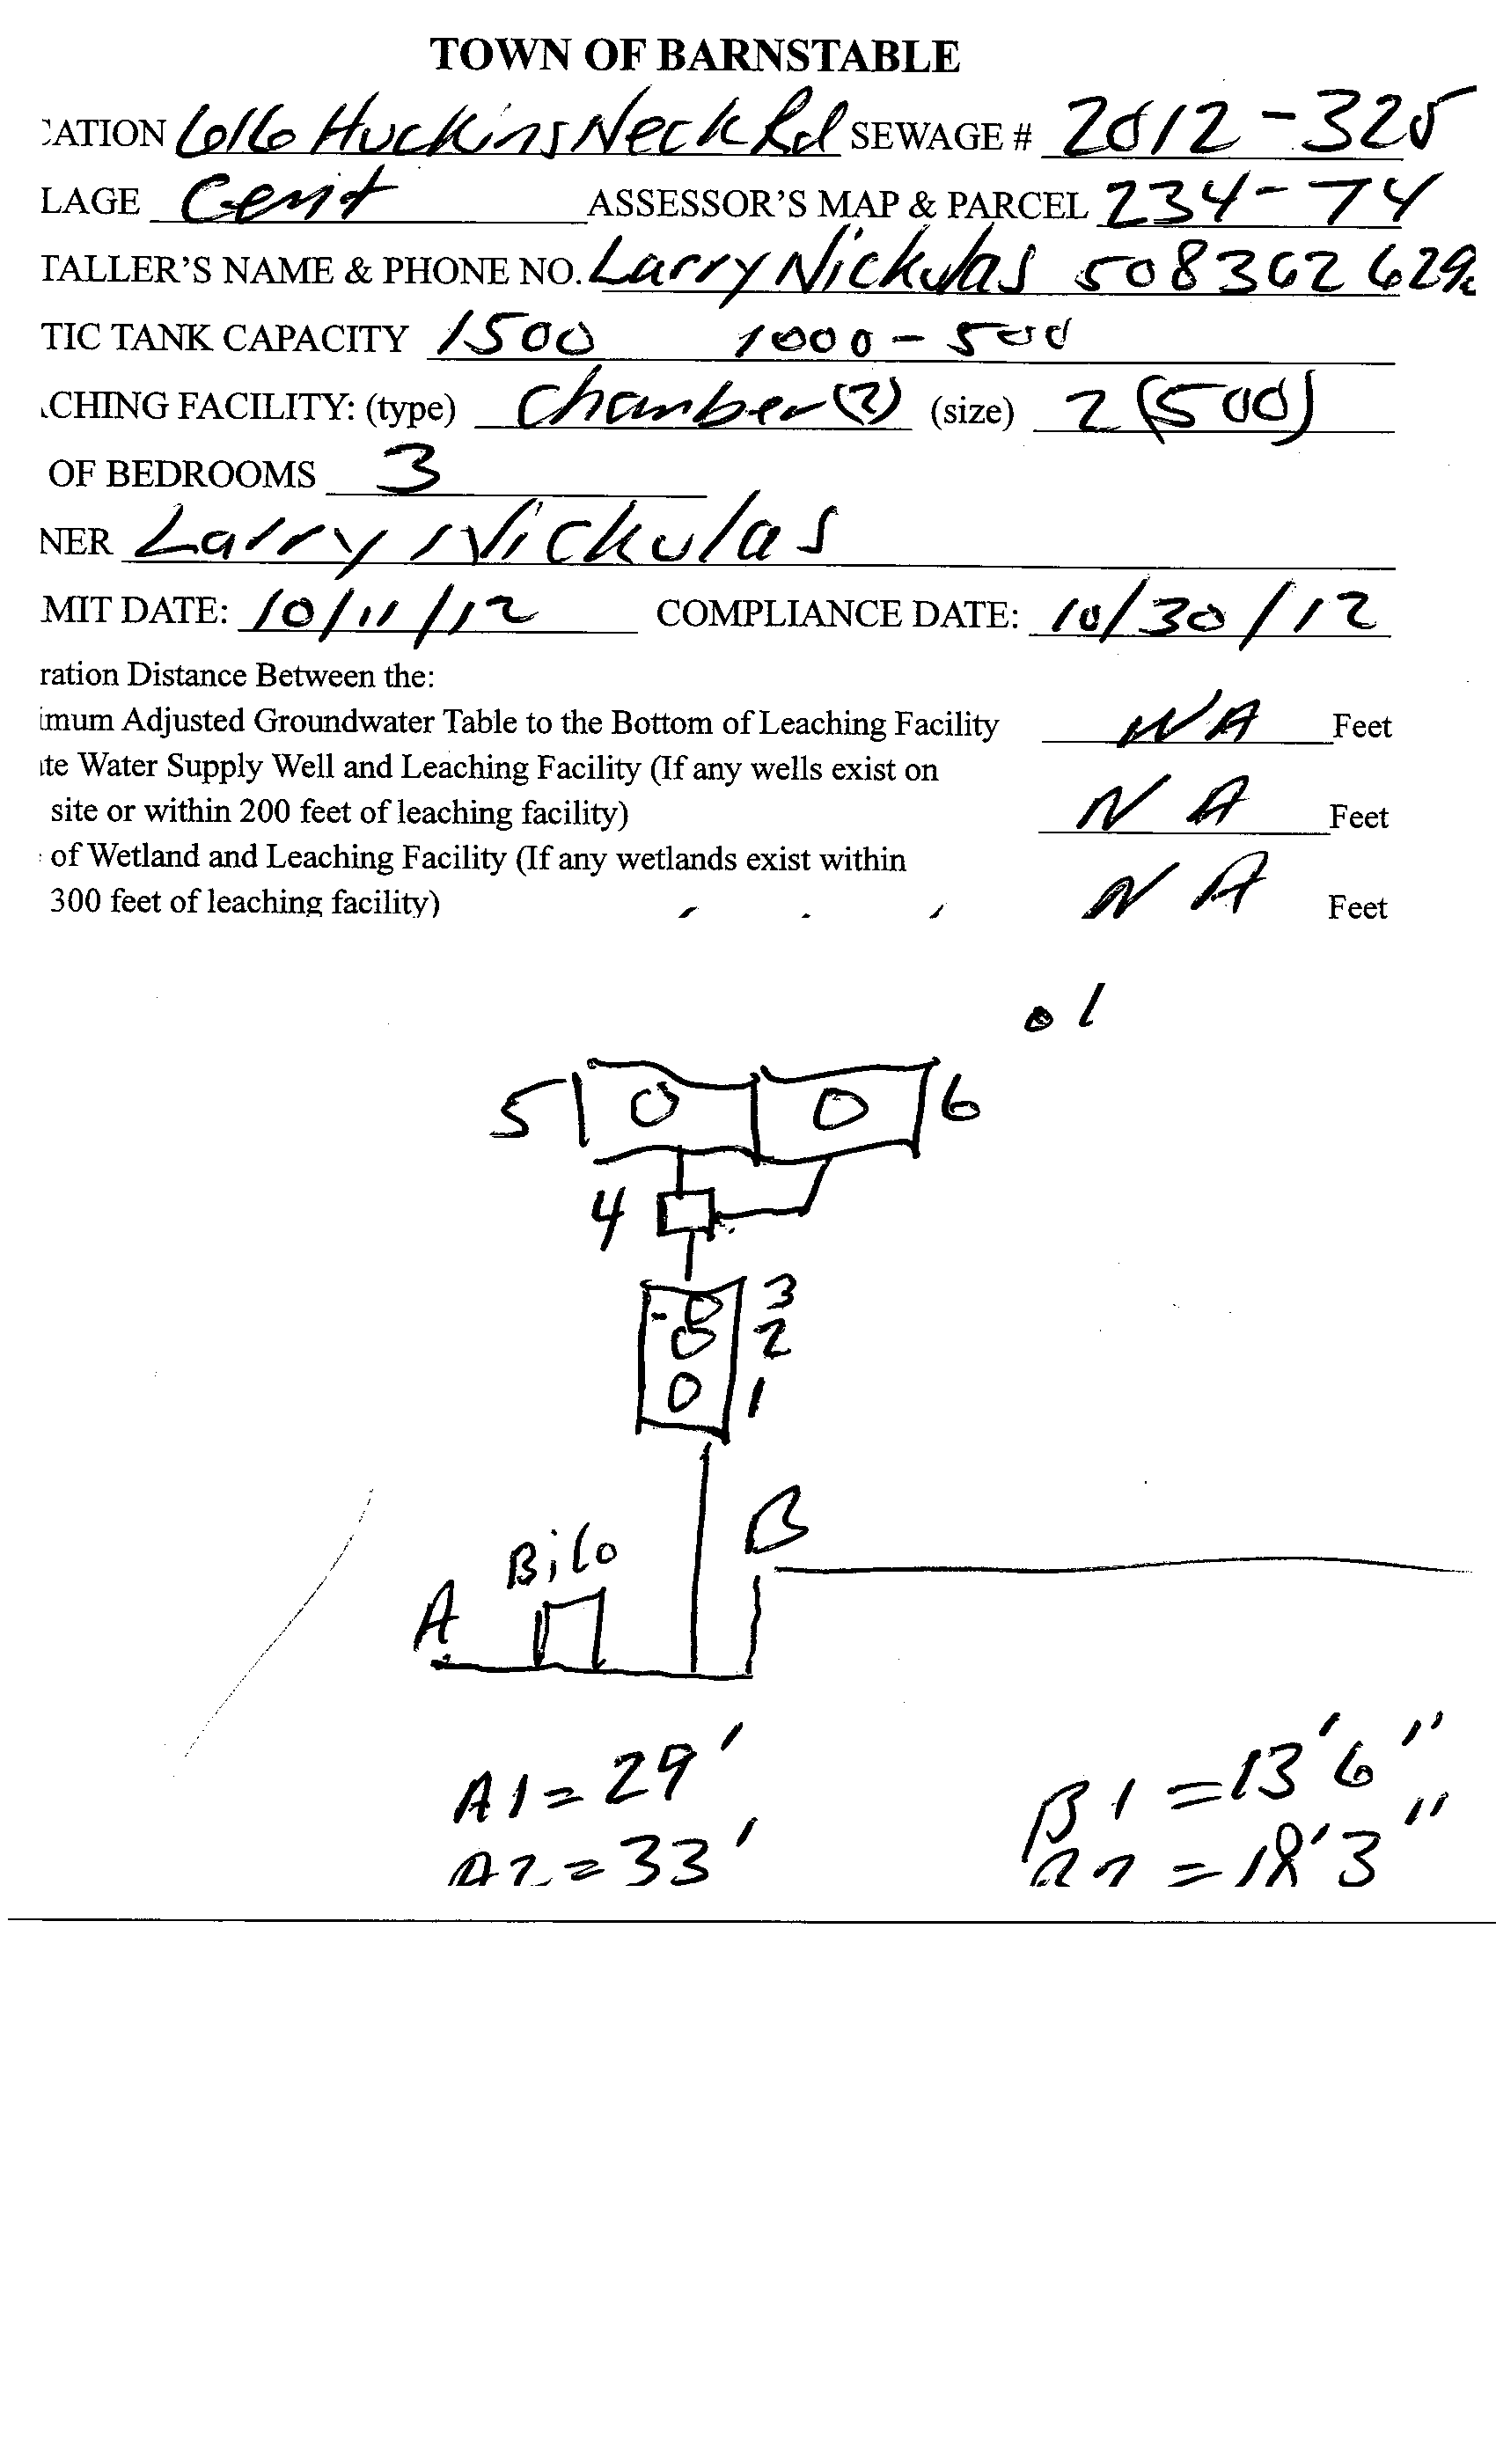 TOWN OF BARNSTABLE
CATION 616 Huckins Neck Rd SEWAGE # 2012-325
LAGE Cent ASSESSOR'S MAP & PARCEL 234-74
TALLER'S NAME & PHONE NO. Larry Nickulas 508 362 629
TIC TANK CAPACITY 1500 1000-500
CHING FACILITY: (type) Chamber (2) (size) 2 (500)
OF BEDROOMS 3
NER Larry Nickulas
MIT DATE: 10/11/12 COMPLIANCE DATE: 10/30/12
ration Distance Between the:
imum Adjusted Groundwater Table to the Bottom of Leaching Facility NA Feet
te Water Supply Well and Leaching Facility (If any wells exist on
site or within 200 feet of leaching facility) NA Feet
of Wetland and Leaching Facility (If any wetlands exist within
300 feet of leaching facility) NA Feet
1
5 0 0 6
4
3
2
0 1
B
Bilo
A
A1 = 29' B1 = 13'6"
A2 = 33' B2 = 18'3"